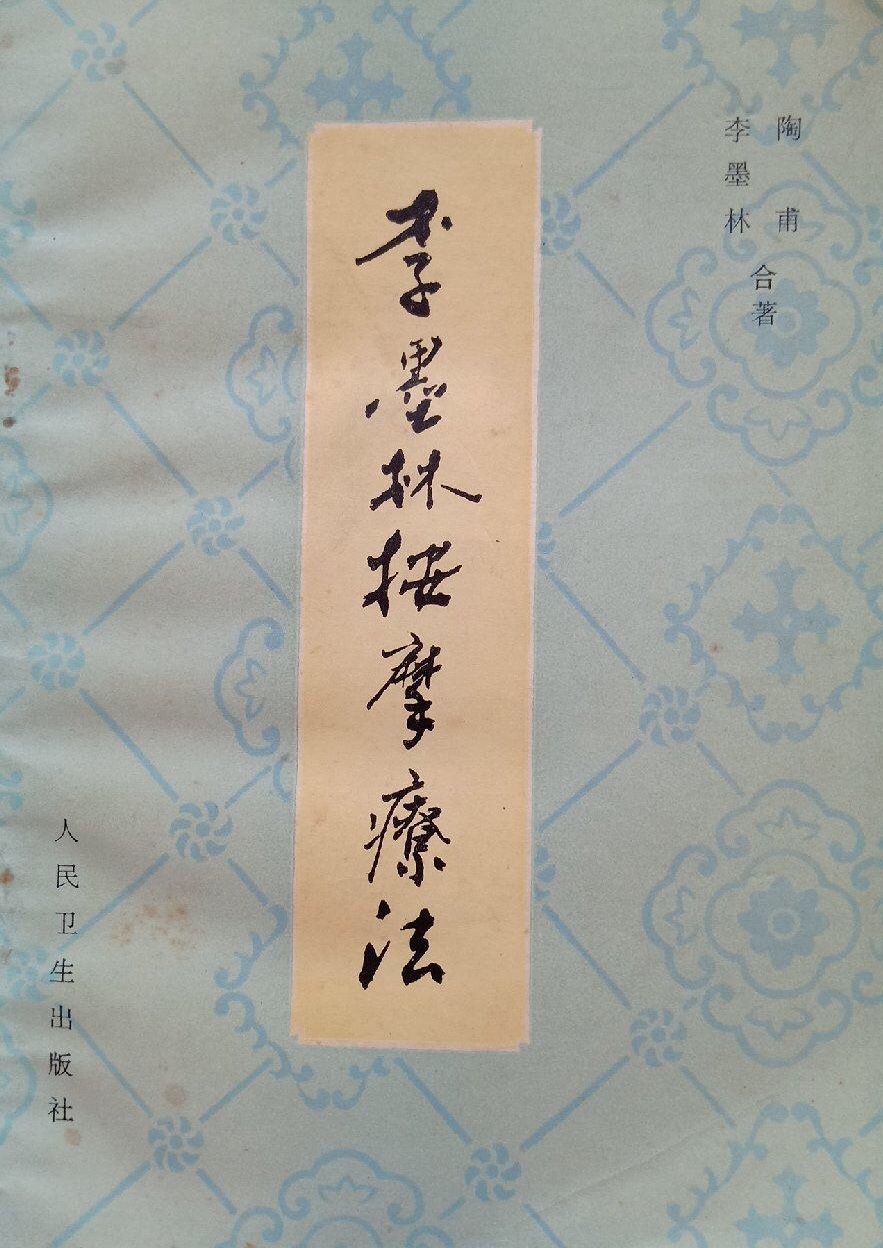 陶甫
李墨林
合著
李墨林按摩療法
人民卫生出版社